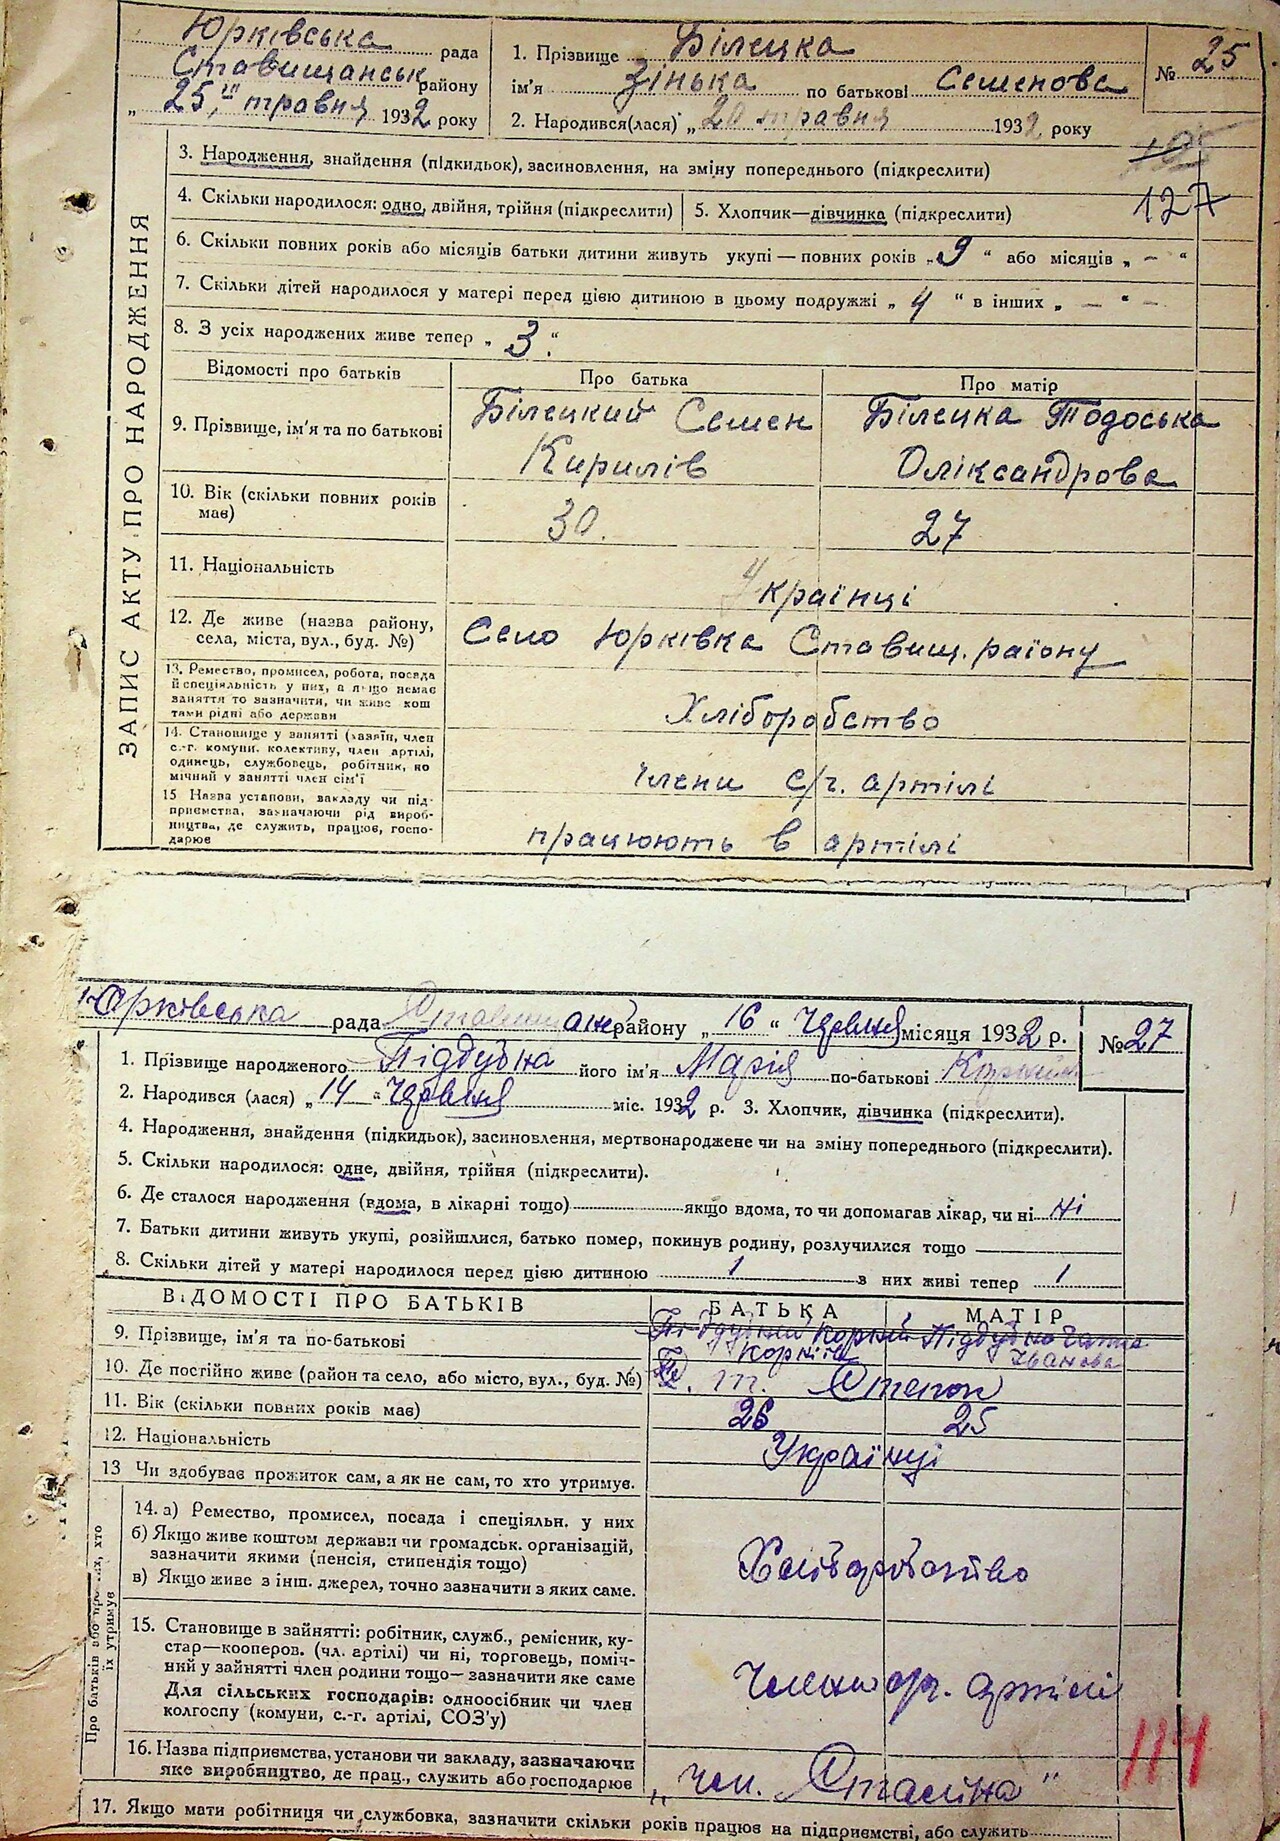 Юрківська рада
Ставищанськ району
„ 25 „ травня 1932 року
1. Прізвище Білецка
ім'я Зінька по батькові Семенова
2. Народився(лася) „ 20 травня 1932 року
№ 25
127
ЗАПИС АКТУ ПРО НАРОДЖЕННЯ
3. Народження, знайдення (підкидьок), засиновлення, на зміну попереднього (підкреслити)
4. Скільки народилося: одно, двійня, трійня (підкреслити) 5. Хлопчик—дівчинка (підкреслити)
6. Скільки повних років або місяців батьки дитини живуть укупі — повних років „ 9 “ або місяців „ - “
7. Скільки дітей народилося у матері перед цією дитиною в цьому подружжі „ 4 “ в інших „ — “ -
8. З усіх народжених живе тепер „ 3 “
Відомості про батьків Про батька Про матір
9. Прізвище, ім'я та по батькові Білецкий Семен Кирилів Білецка Тодоська Оліксандрова
10. Вік (скільки повних років має) 30. 27
11. Національність Українці
12. Де живе (назва району, села, міста, вул., буд. №) Село Юрківка Ставищ. раїону
13. Ремество, промисел, робота, посада
й спеціальність у них, а якщо немає
заняття то зазначити, чи живе кош
тами рідні або держави
Хліборобство
14. Становище у занятті (хазяїн, член
с.-г. комуни. колективу, член артілі,
одинець, службовець, робітник, по
мічний у занятті член сім'ї
члени с/г. артілі
15 Назва установи, закладу чи під-
приємства, зазначаючи рід вироб-
ництва, де служить, працює, госпо-
дарює
працюють в артілі
Юрківська рада району „ 16 “ червня місяця 1932 р.
№ 27
1. Прізвище народженого Підду́бна його ім'я Марія по-батькові
2. Народився (лася) „ 14 “ червня міс. 1932 р. 3. Хлопчик, дівчинка (підкреслити).
4. Народження, знайдення (підкидьок), засиновлення, мертвонароджене чи на зміну попереднього (підкреслити).
5. Скільки народилося: одне, двійня, трійня (підкреслити).
6. Де сталося народження (вдома, в лікарні тощо) якщо вдома, то чи допомагав лікар, чи ні ні
7. Батьки дитини живуть укупі, розійшлися, батько помер, покинув родину, розлучилися тощо
8. Скільки дітей у матері народилося перед цією дитиною 1 з них живі тепер 1
ВІДОМОСТІ ПРО БАТЬКІВ БАТЬКА МАТІР
9. Прізвище, ім'я та по-батькові Корній Корніїв Піддубна Ганна Іванова
10. Де постійно живе (район та село, або місто, вул., буд. №)
11. Вік (скільки повних років має) 26 25
12. Національність Українці
13 Чи здобуває прожиток сам, а як не сам, то хто утримує.
Про батьків або про тих, хто їх утримує
14. а) Ремество, промисел, посада і спеціяльн. у них
б) Якщо живе коштом держави чи громадськ. організацій,
зазначити якими (пенсія, стипендія тощо)
в) Якщо живе з інш. джерел, точно зазначити з яких саме.
Хліборобство
15. Становище в зайнятті: робітник, служб., ремісник, ку-
стар—кооперов. (чл. артілі) чи ні, торговець, поміч-
ний у зайнятті член родини тощо—зазначити яке саме
Для сільських господарів: одноосібник чи член
колгоспу (комуни, с.-г. артілі, СОЗ'у)
члени с/г. артілі
16. Назва підприємства, установи чи закладу, зазначаючи
яке виробництво, де прац., служить або господарює
„ Сталіна “
114
17. Якщо мати робітниця чи службовка, зазначити скільки років працює на підприємстві, або служить